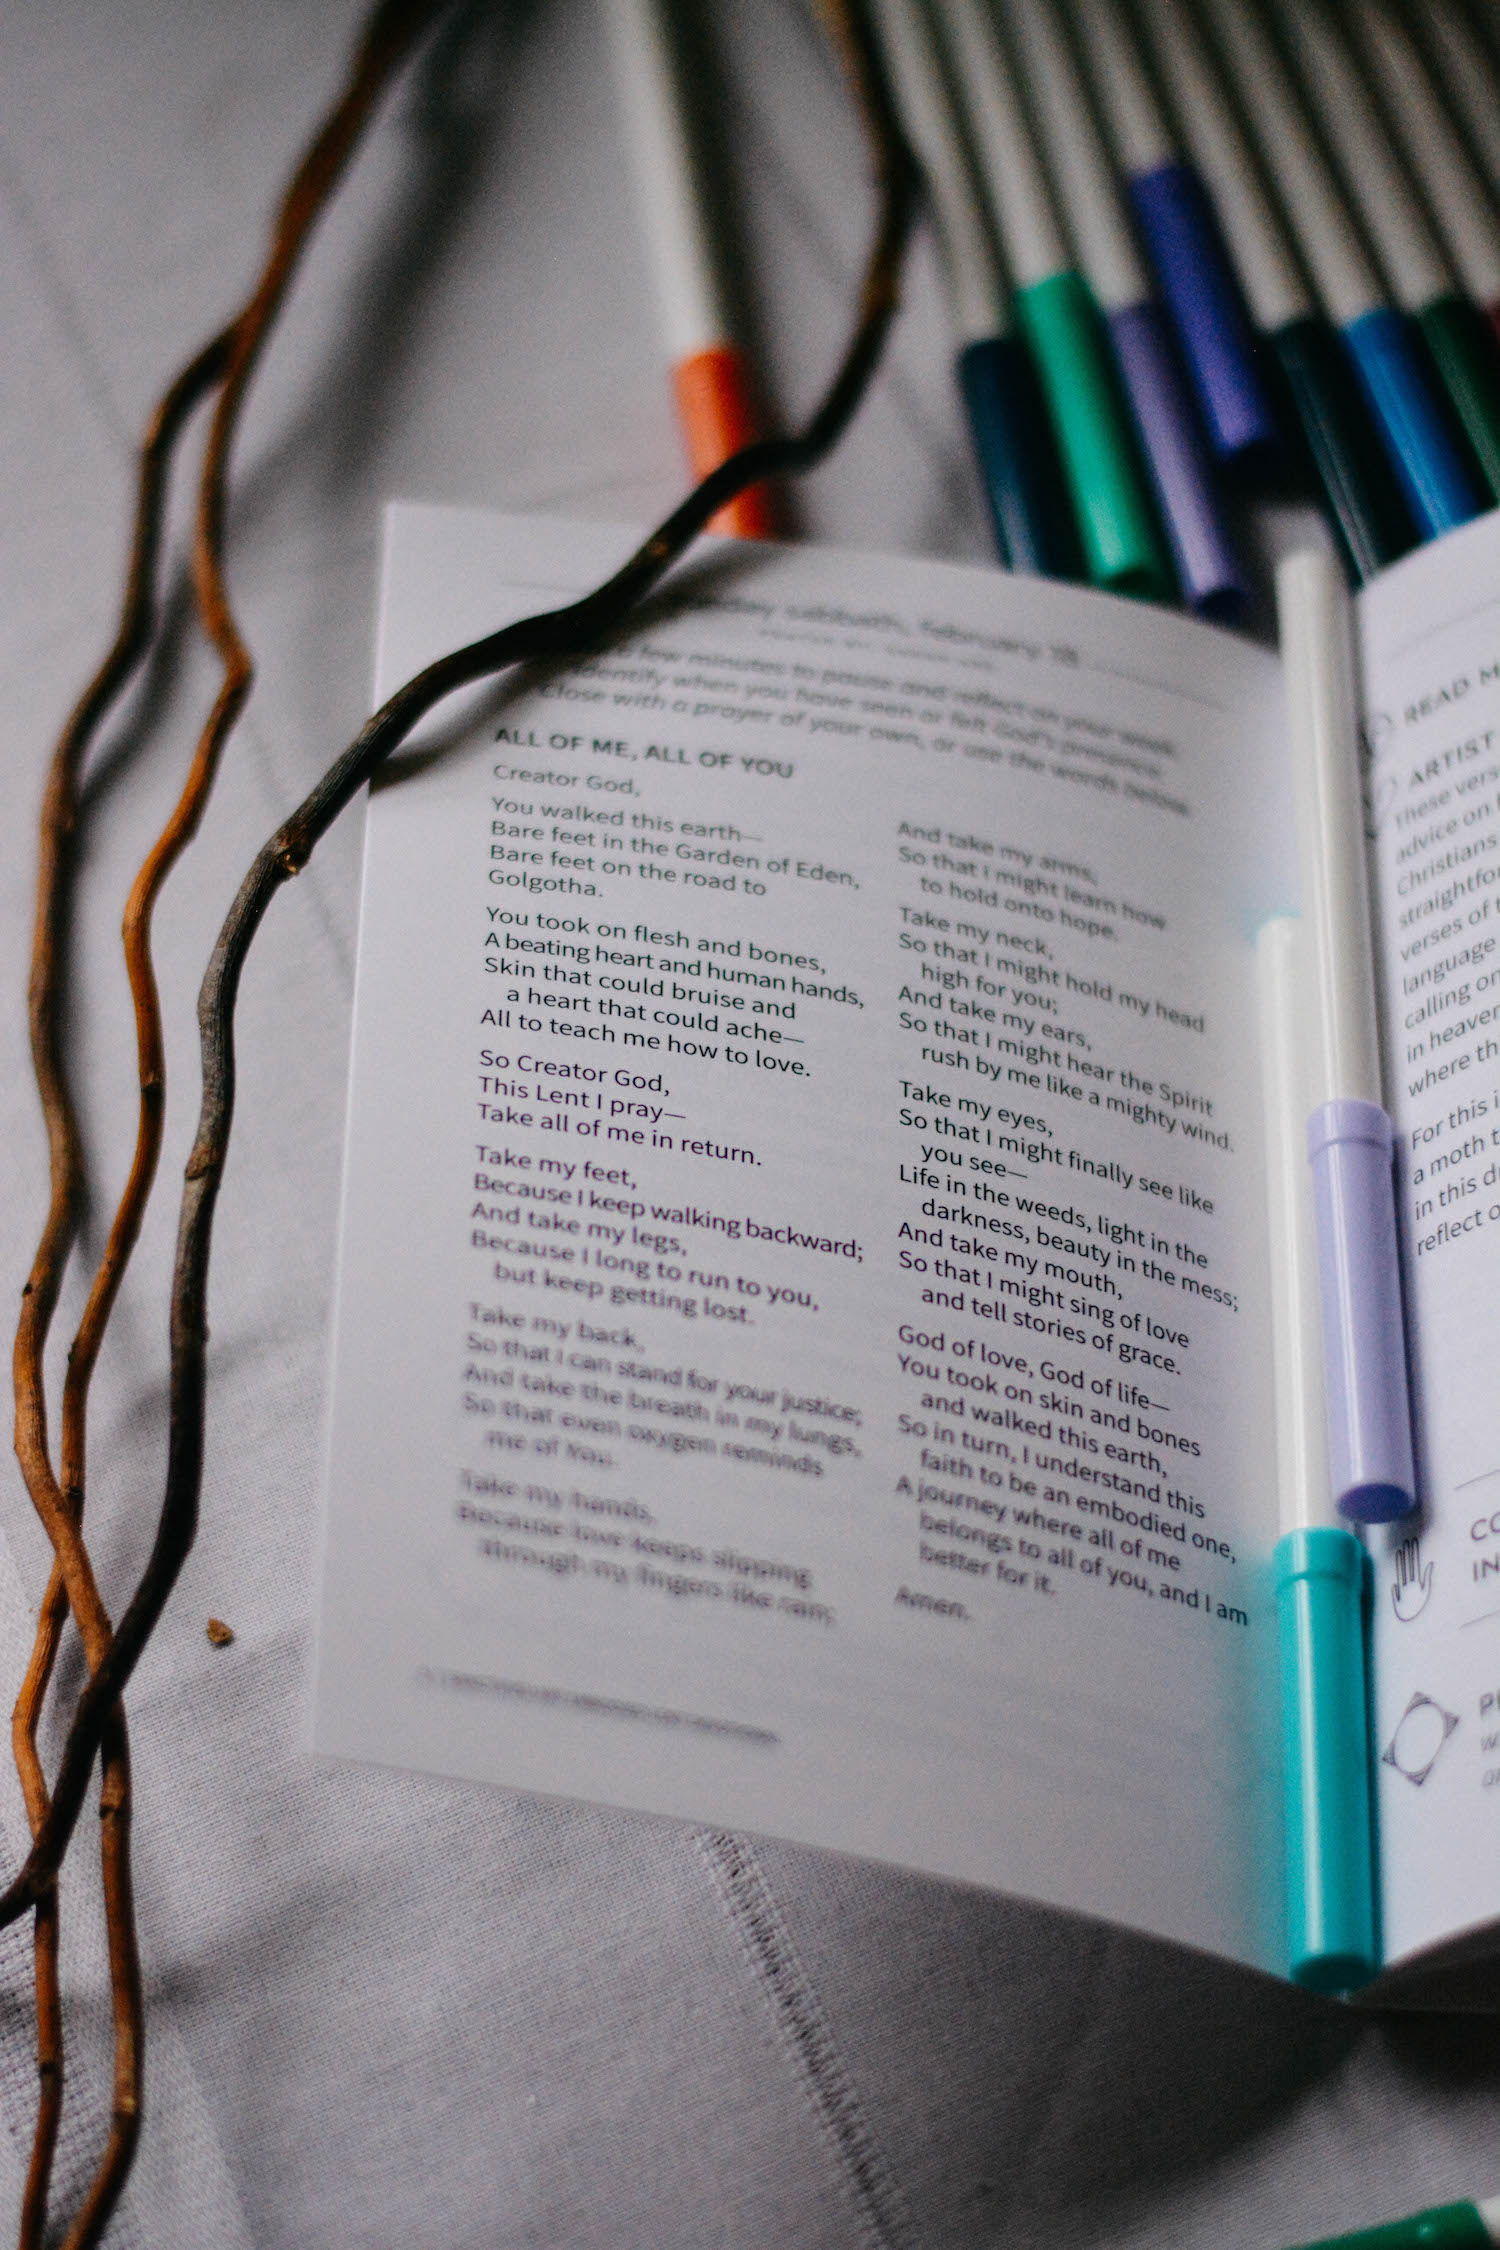 sabbath, february 18
few minutes to pause and reflect on your week.
identify when you have seen or felt God's presence.
Close with a prayer of your own, or use the words below.
ALL OF ME, ALL OF YOU
Creator God,
You walked this earth—
Bare feet in the Garden of Eden,
Bare feet on the road to
Golgotha.
You took on flesh and bones,
A beating heart and human hands,
Skin that could bruise and
a heart that could ache—
All to teach me how to love.
So Creator God,
This Lent I pray—
Take all of me in return.
Take my feet,
Because I keep walking backward;
And take my legs,
Because I long to run to you,
but keep getting lost.
Take my back,
So that I can stand for your justice;
And take the breath in my lungs,
So that even oxygen reminds
me of You.
Take my hands,
Because love keeps slipping
through my fingers like rain;
And take my arms,
So that I might learn how
to hold onto hope.
Take my neck,
So that I might hold my head
high for you;
And take my ears,
So that I might hear the Spirit
rush by me like a mighty wind.
Take my eyes,
So that I might finally see like
you see—
Life in the weeds, light in the
darkness, beauty in the mess;
And take my mouth,
So that I might sing of love
and tell stories of grace.
God of love, God of life—
You took on skin and bones
and walked this earth,
So in turn, I understand this
faith to be an embodied one,
A journey where all of me
belongs to all of you, and I am
better for it.
Amen.
READ M
ARTIST
These vers
advice on
Christians
straightfor
verses of t
language
calling on
in heaven
where th
For this i
a moth t
in this d
reflect o
CO
IN
P